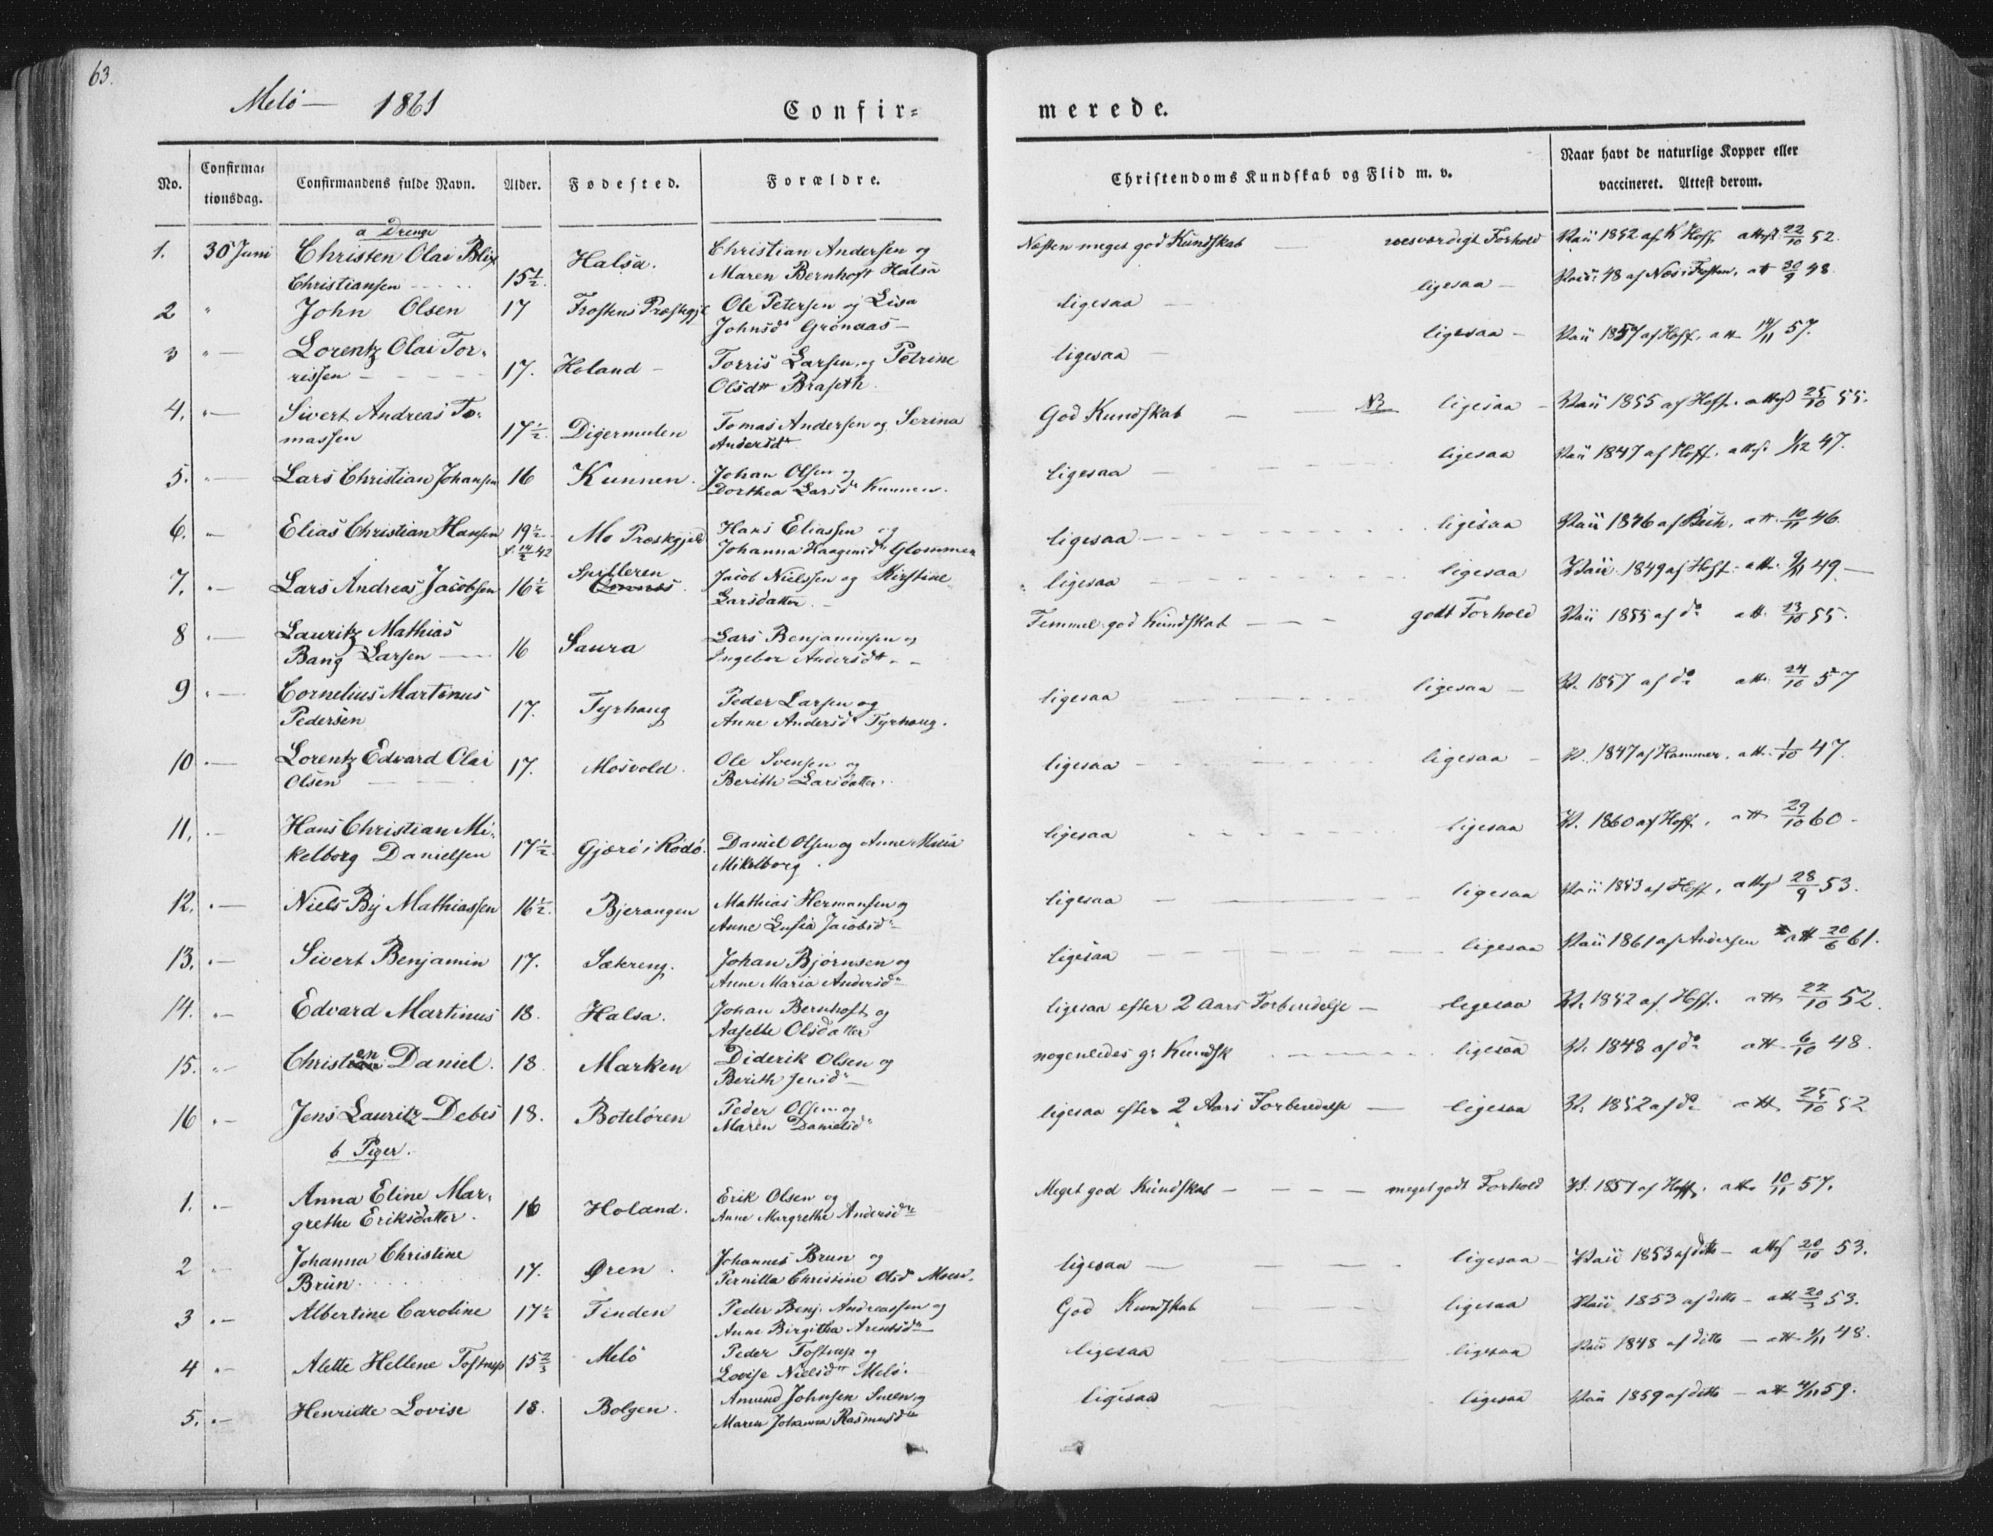 63.
Melö — 1861
Confir= merede.
No. Confirmationsdag. Confirmandens fulde Navn. Alder. Fødested. Forældre. Christendoms Kundskab og Flid m. v. Naar havt de naturlige Kopper eller vaccineret. Attest derom.
a Drenge
1. 30 Juni Christen Olai Blix Christiansen 15½ Halsa. Christian Andersen og Maren Bernhoft Halsa Næsten meget god Kundskab — roesværdigt Forhold Vac 1852 af K Hoff attest 22/10 52.
2 " John Olsen 17 Frostens Præstgje Ole Petersen og Lisa Johnsdr Grönaas — ligesaa — ligesaa — 48 af Næs i Frosten, att 30/9 48.
3 " Lorentz Olai Torrissen 17. Holand Torris Larsen og Petrine Olsdtr Braseth ligesaa — ligesaa — Vac 1857 af Hoff, att 14/11 57.
4. " Sivert Andreas Tomassen 17½ Digermulen Tomas Andersen og Serina Andersdr God Kundskab — NB ligesaa — Vac 1855 af Hoff. attest 25/10 55.
5. " Lars Christian Johansen 16 Kunnen. Johan Olsen og Dorthea Larsdr Kunnen. ligesaa — ligesaa Vac 1847 af Hoff. attest 1/12 47.
6. " Elias Christian Hansen 19½ f. 14/2 42 Mo Præstgjeld Hans Eliassen og Johanna Haagensdr Glommen ligesaa — ligesaa Vac 1846 af att 10/11 46
7. " Lars Andreas Jacobsen 16½ Spilleren Jacob Nielssen og Kirstine Larsdatter. ligesaa — ligesaa Vac 1849 af Hoff. att. 9/11 49 —
8 " Lauritz Mathias Bang Larsen 16 Saura Lars Benjaminsen og Ingebor Andersdtr Temmel. god Kundskab — godt Forhold Vac 1855 af do att. 23/10 55.
9 " Cornelius Martinus Pedersen 17. Tyrhaug Peder Larsen og Anne Andersdr Tyrhaug. ligesaa — ligesaa — V. 1857 af do att. 24/10 57
10 " Lorentz Edvard Olai Olsen 17. Mosvold. Ole Svensen og Berith Larsdatter. ligesaa — ligesaa — V. 1847 af Hammer. att. 1/10 47.
11. " Hans Christian Mikelborg Danielsen 17½ Gjærö i Rödö. Daniel Olsen og Anne Maria Mikelborg. ligesaa ligesaa V. 1860 af Hoff. att 29/10 60 —
12. " Niels By Mathiassen 16½. Bjerangen Mathias Hermansen og Anne Jacobsdr ligesaa — ligesaa Vac 1853 af Hoff, attest 28/9 53.
13. " Sivert Benjamin 17. Sækreng. Johan Bjørnsen og Anne Maria Andersdr ligesaa — ligesaa Vac 1861 af Andersen att 20/6 61.
14. " Edvard Martinus 18. Halsa. Johan Bernhoft og Aaselte Olsdatter ligesaa efter 2 Aars Forberedelse — ligesaa V. 1852 af Hoff. att 22/10 52.
15. " Christen Daniel. 18. Marken Diderik Olsen og Berith Jensdr nogenledes g: Kundsk — ligesaa V. 1848 af do att. 6/10 48.
16 " Jens Lauritz Debes 18. Botelören Peder Olsen og Maren Danielsdr ligesaa efter 2 Aars Forberedelse — ligesaa V. 1852 af do att 25/10 52
b Piger.
1. " Anna Eline Margrethe Eriksdatter. 16 Holand. Erik Olsen og Anne Margrethe Andersdtr Meget god Kundskab — meget godt Forhold V. 1857 af Hoff. att. 10/11 57.
2 " Johanna Christine Brün. 17. Øren. Johannes Brun og Pernilla Christine Olsd Moen. ligesaa — ligesaa — Vac 1853 af ditto — attest 20/10 53.
3 " Albertine Caroline 17½ Finden Peder Benj. Andreassen og Anne Birgitha Arentsdr God Kundskab — ligesaa Vac 1853 af ditto — att 20/3 53.
4 " Alette Hellene Tostrup 15⅔ Melö Peder Tostrup og Lovise Nielsdtr Melö. ligesaa — ligesaa Vac 1848 af ditto — att 1/11 48.
5. " Henriette Lovise 18. Bolgen. Amund Johnsen og Maren Johanna Rasmusdtr ligesaa ligesaa Vac 1859 af ditto — att 4/11 59.